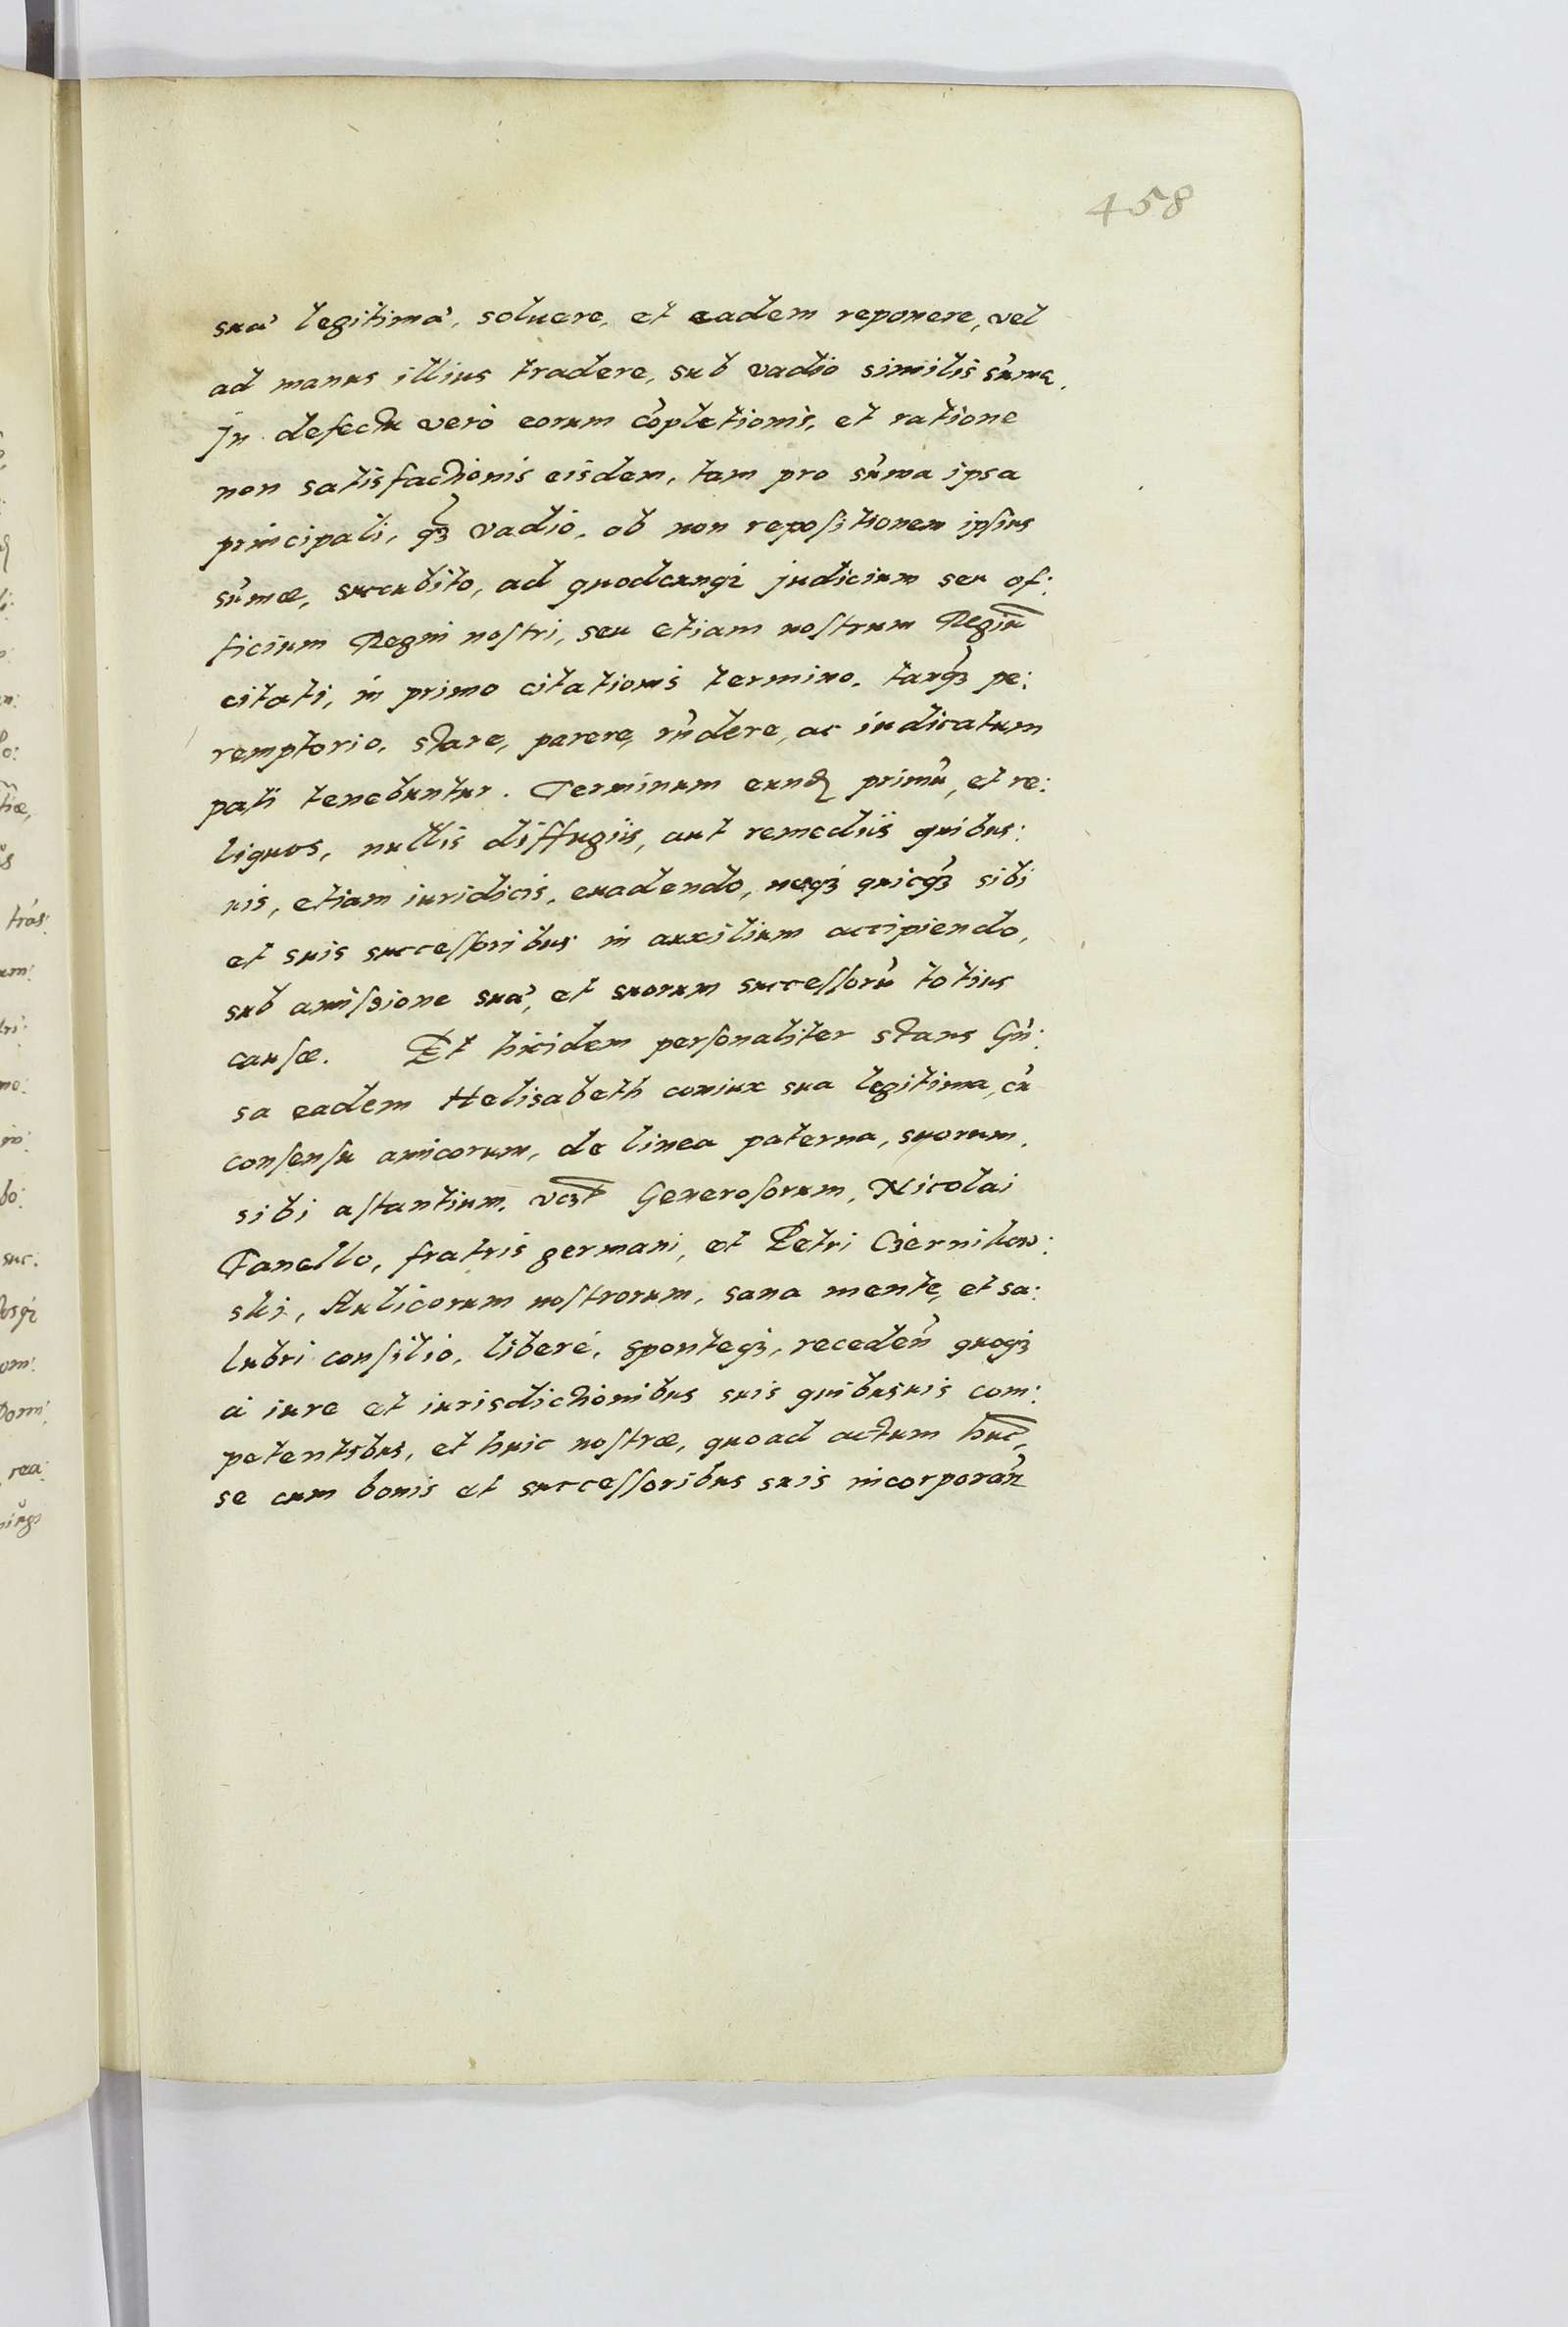 458
suà legitimà, soluere, et eadem reponere, vel
ad manus illius tradere, sub vadio similis sum̃æ.
Jn defectu verò eorum cõpletionis, et ratione
non satisfactionis eisdem, tam pro sum̃a ipsa
principali, q̃ꝫ vadio, ob non repoſitionem ipſius
sum̃æ, succubito, ad quodcunqꝫ judicium seu of:
ficium Regni noſtri, seu etiam noſtrum Regiũ
citati, in primo citationis termino, tanq̃ꝫ pe:
remptorio, stare, parere, rñdere, ac iudicatum
pati tenebuntur. Terminum eundꝫ primũ, et re:
liquos, nullis diffugijs, aut remedijs quibus:
uis, etiam iuridicis, euadendo, neqꝫ quicq̃ꝫ sibi
et suis succeſſoribus in auxilium accipiendo,
sub amiſsione suà, et suorum succeſſorũ totius
cauſæ. Et hicidem perſonaliter stans Gñ:
sa eadem Helisabeth coniux sua legitima, cũ
conſenſu amicorum, de linea paterna, suorum,
sibi aſtantium, vcꝫt Generoſorum, Nicolai
Fanello, fratris germani, et Petri Czernikow:
ski, Aulicorum noſtrorum, sana mente, et sa:
lubri conſilio, liberè, sponteqꝫ, recedeñ quoqꝫ
à iure et iurisdictionibus suis quibusuis com:
petentibus, et huic noſtræ, quoad actum hũc,
se cum bonis et succeſſoribus suis incorporañ